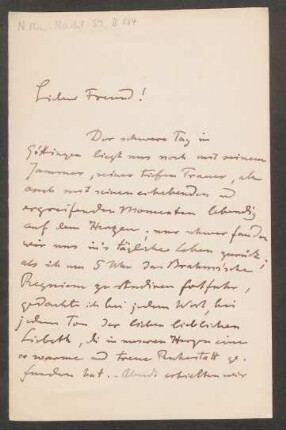 Lieber Freund!
Der schwere Tag in
Göttingen liegt uns noch mit seinem
Jammer, seiner tiefen Trauer, aber
auch mit seinen erhebenden und
ergreifenden Momenten lebendig
auf dem Herzen; nur schwer fanden
wir uns in's tägliche Leben zurück;
als ich um 5 Uhr das Brahmssche
Requiem zu studiren fortfuhr,
gedachte ich bei jedem Wort, bei
jedem Ton der lieben lieblichen
Lisbeth, die in unseren Herzen eine
so warme und treue Ruhestatt ge-
funden hat. – Abends erhielten wir